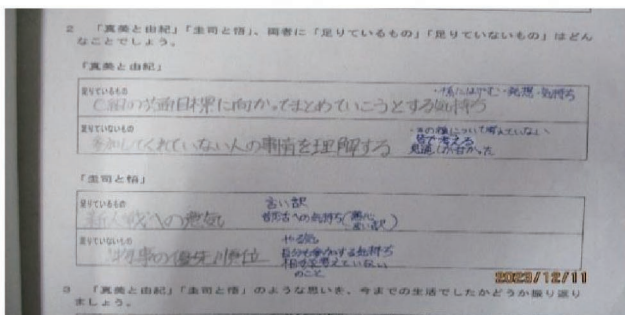 2 「真美と由紀」「圭司と悟」、両者に「足りているもの」「足りていないもの」はどん
なことでしょう。
「真美と由紀」
足りているもの
に向かってまとめていこうとする気持ち
足りていないもの
参加してくれていない人の事情を理解する
皆で考える
見通しが甘かった
「圭司と悟」
足りているもの
新人戦への意気
言い訳
足りていないもの
物事の優先順位
やる気
自分も参加する気持ち
相手を考えていない
のこと
2023/12/11
3 「真美と由紀」「圭司と悟」のような思いを、今までの生活でしたかどうか振り返り
ましょう。